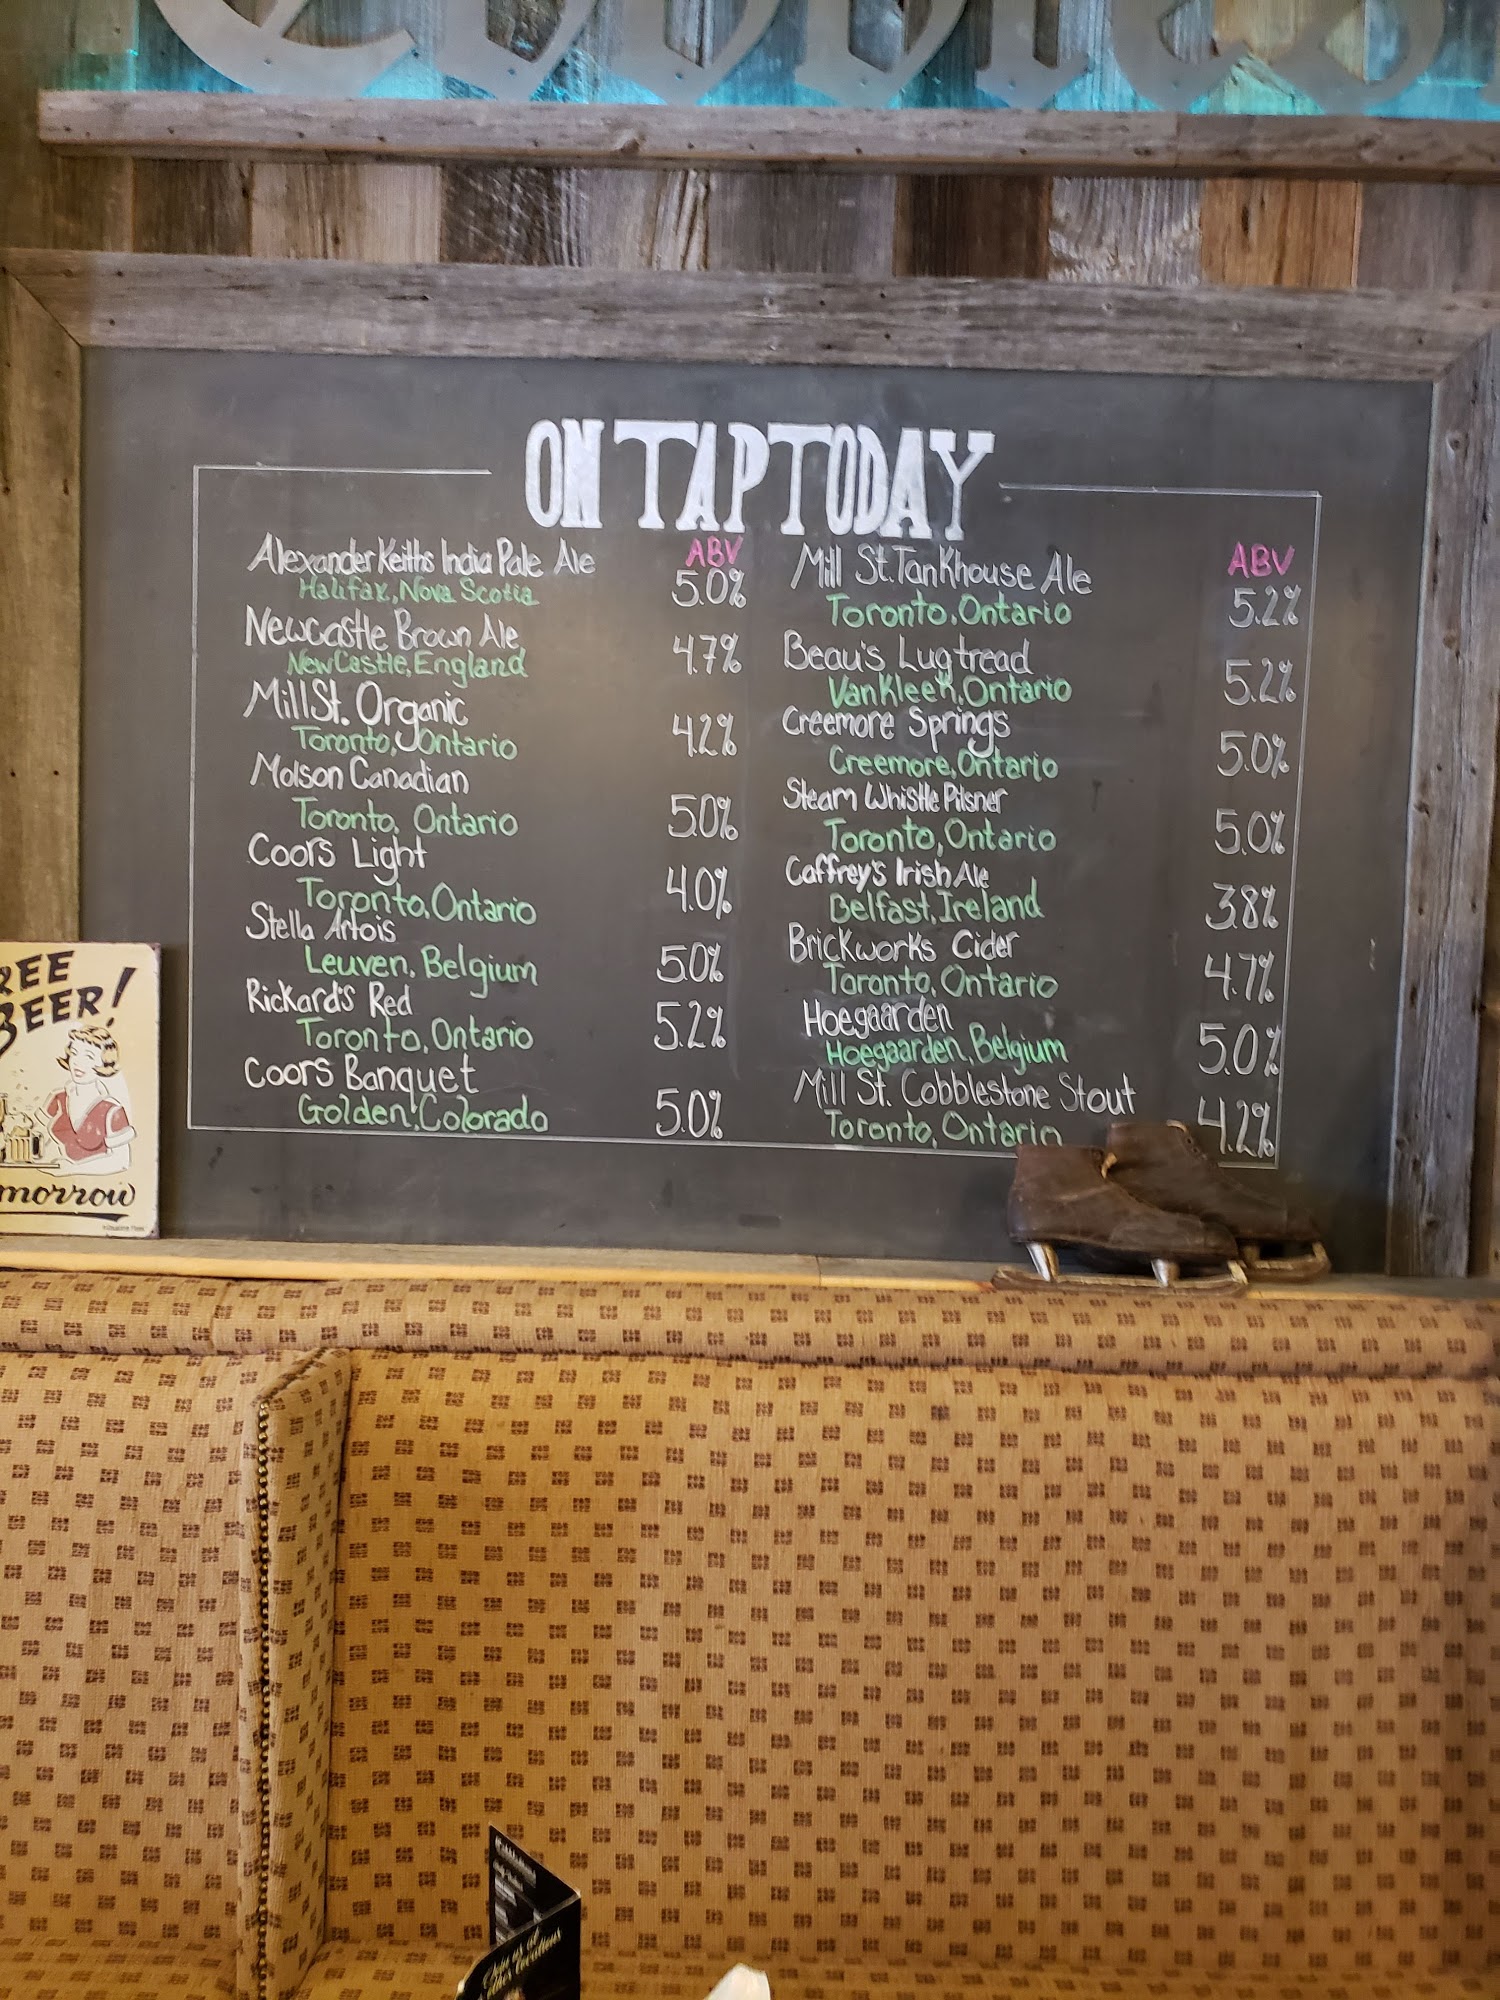 ON TAP TODAY
ABV
Alexander Keiths India Pale Ale
Halifax, Nova Scotia
5.0%
Newcastle Brown Ale
NewCastle, England
4.7%
Mill St. Organic
Toronto, Ontario
4.2%
Molson Canadian
Toronto, Ontario
5.0%
Coors Light
Toronto, Ontario
4.0%
Stella Artois
Leuven, Belgium
5.0%
Rickard's Red
Toronto, Ontario
5.2%
Coors Banquet
Golden, Colorado
5.0%
ABV
Mill St. Tankhouse Ale
Toronto, Ontario
5.2%
Beau's Lugtread
VanKleek, Ontario
5.2%
Creemore Springs
Creemore, Ontario
5.0%
Steam Whistle Pilsner
Toronto, Ontario
5.0%
Caffrey's Irish Ale
Belfast, Ireland
3.8%
Brickworks Cider
Toronto, Ontario
4.7%
Hoegaarden
Hoegaarden, Belgium
5.0%
Mill St. Cobblestone Stout
Toronto, Ontario
4.2%
REE
BEER!
morrow
other locations